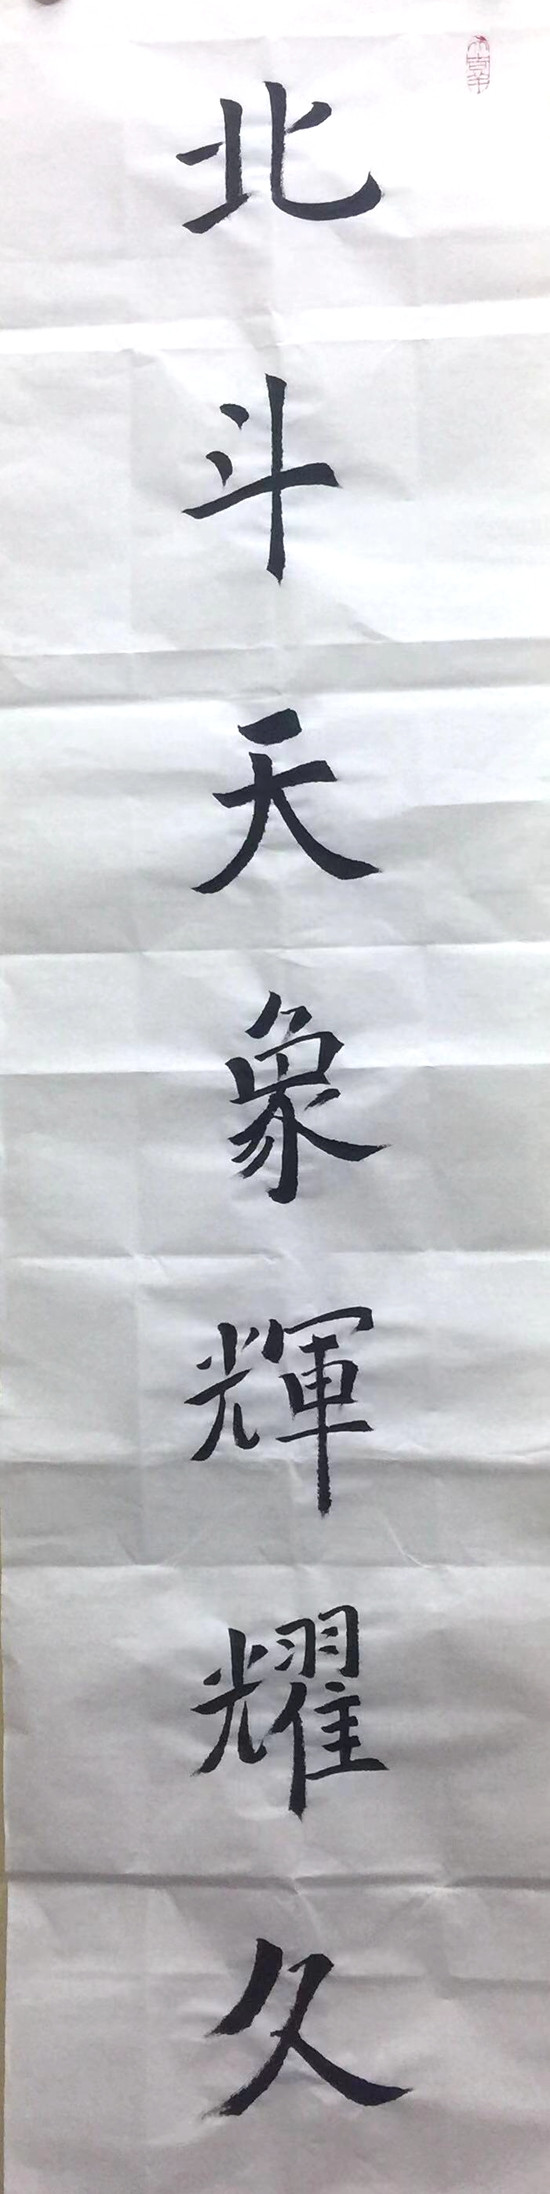 北斗天象輝耀久